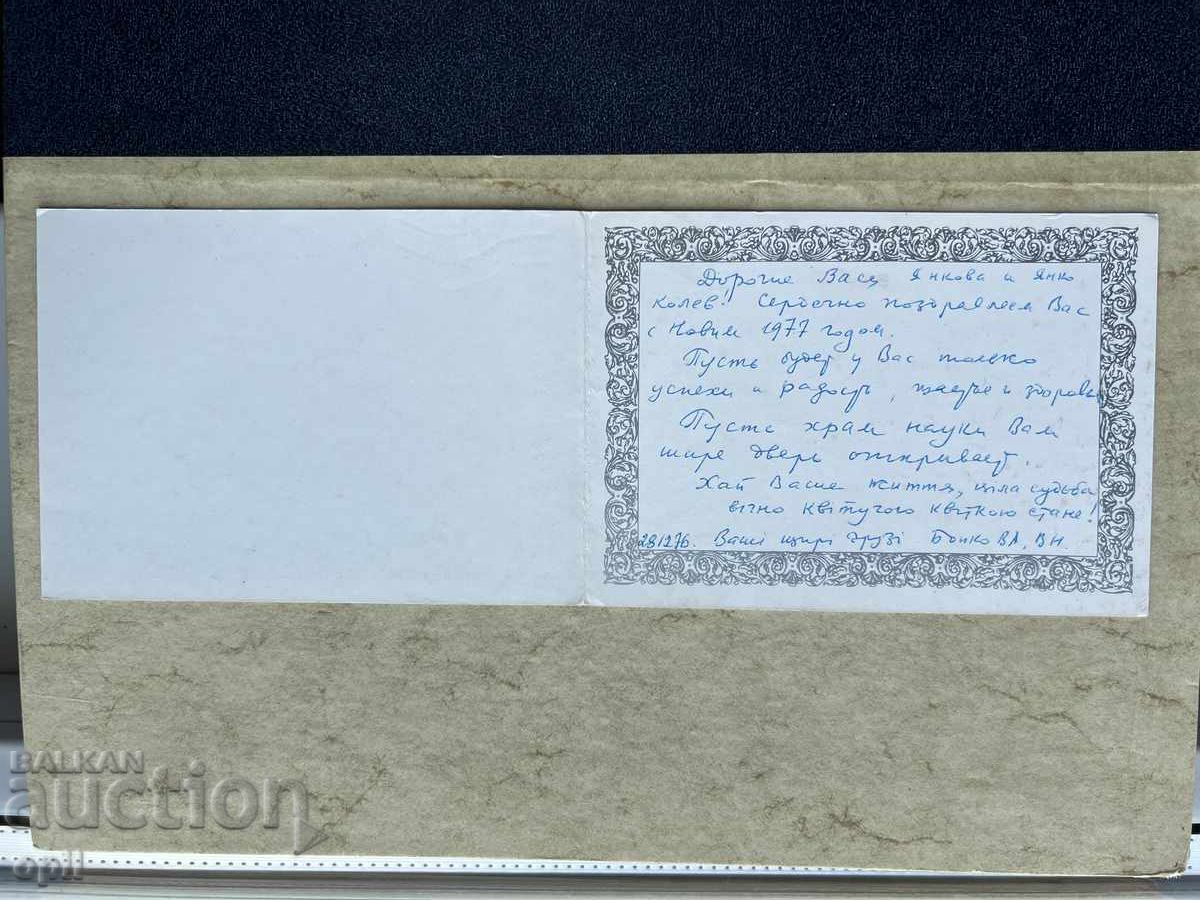 Дорогие Васа Янкова и Янко
Колев! Сердечно поздравляем Вас
с Новим 1977 годом.
Пусть будет у Вас только
успехи и радость, счастье и здоровье
Пусть храм науки Вам
шире двери открывает.
Хай Ваше життя, ціла судьба
вічно квітучою квіткою стане!
281276. Ваші щирі друзі Бойко ВЛ, ВН.
BALKAN
auction
opil